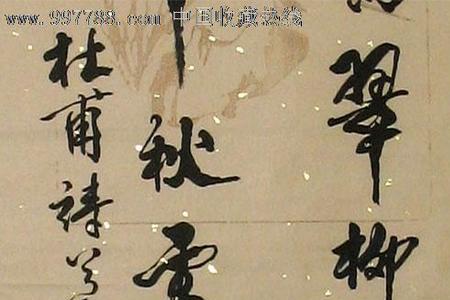 www.997788.com 中国收藏热线
翠柳
千秋雪
杜甫诗